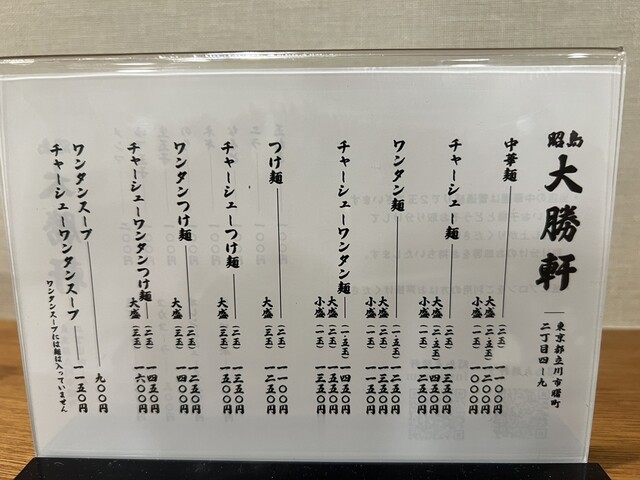 昭島
大勝軒
東京都立川市曙町
二丁目四ー九
中華麺 一一〇〇円
大盛 一二〇〇円
小盛 (一玉) 一〇〇〇円
チャーシュー麺 (一・五玉) 一三五〇円
大盛 一四五〇円
小盛 (一玉) 一二五〇円
ワンタン麺 (一・五玉) 一二五〇円
大盛 一三五〇円
小盛 (一玉) 一一五〇円
チャーシューワンタン麺 (一・五玉) 一四五〇円
大盛 一五五〇円
小盛 (一玉) 一三五〇円
つけ麺 (二玉) 一一〇〇円
大盛 (三玉) 一二五〇円
チャーシューつけ麺 (二玉) 一三五〇円
大盛 (三玉) 一五〇〇円
ワンタンつけ麺 (二玉) 一二五〇円
大盛 (三玉) 一四〇〇円
チャーシューワンタンつけ麺 (二玉) 一四五〇円
大盛 (三玉) 一六〇〇円
ワンタンスープ 九〇〇円
チャーシューワンタンスープ 一一五〇円
ワンタンスープには麺は入っていません